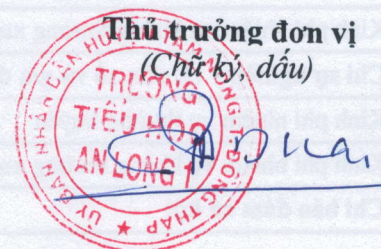 Thủ trưởng đơn vị
(Chữ ký, dấu)
ỦY BAN NHÂN DÂN HUYỆN TAM NÔNG-T.ĐỒNG THÁP
TRƯỜNG
TIỂU HỌC
AN LONG